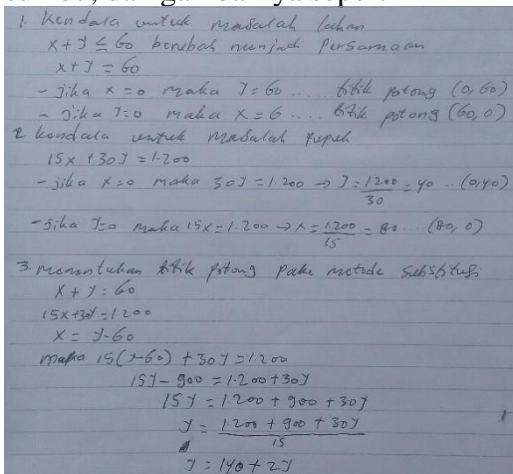 1. Kendala untuk masalah lahan
x + y ≤ 60 berubah menjadi persamaan
x + y = 60
- jika x = 0 maka y = 60 .... titik potong (0, 60)
- jika y = 0 maka x = 6 .... titik potong (60, 0)
2. kendala untuk masalah pupuk
15x + 30y = 1.200
- jika x = 0 maka 30y = 1.200 → y = 1200/30 = 40 .. (0,40)
- jika y = 0 maka 15x = 1.200 → x = 1.200/15 = 80 ... (80, 0)
3. menentukan titik potong pake metode substitusi
x + y = 60
15x + 30y = 1.200
x = y - 60
maka 15(y - 60) + 30y = 1200
15y - 900 = 1.200 + 30y
15y = 1.200 + 900 + 30y
y = 1.200 + 900 + 30y / 15
y = 140 + 2y